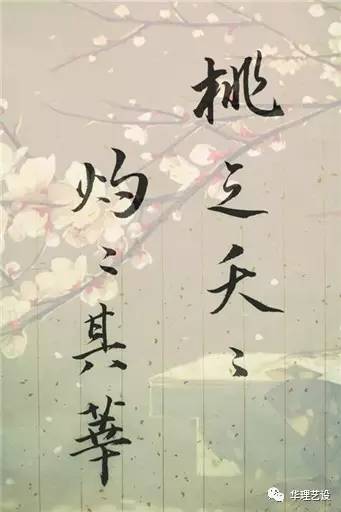 桃之夭〻
灼〻其華
华理艺设